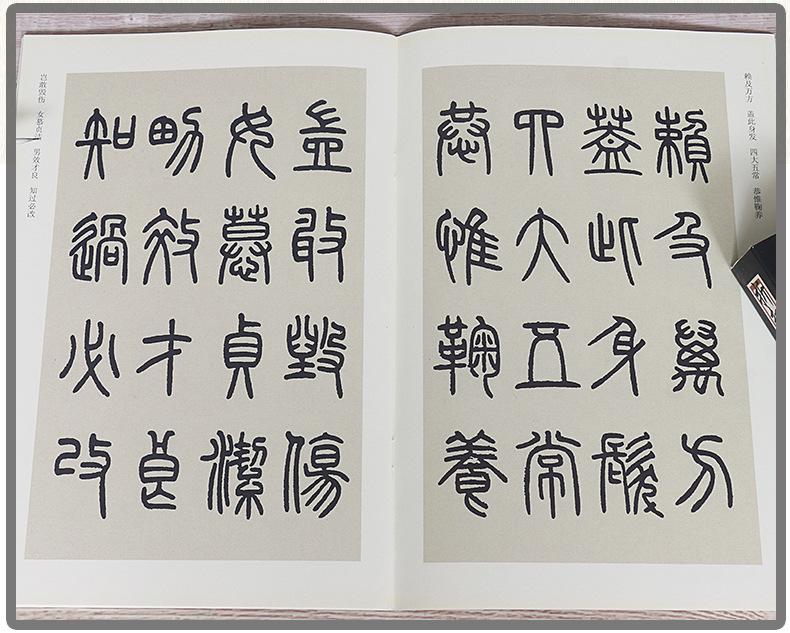 赖及万方 盖此身发 四大五常 恭惟鞠养
賴及萬方
蓋此身髮
四大五常
恭惟鞠養
豈敢毀傷
女慕貞潔
男效才良
知過必改
岂敢毁伤 女慕贞洁 男效才良 知过必改